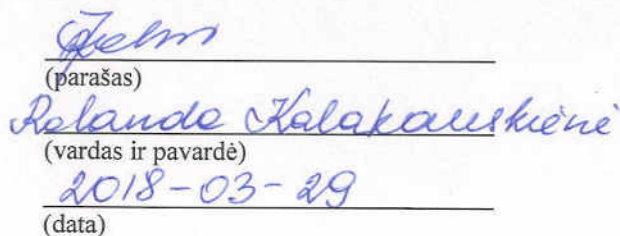 (parašas)
Rolanda Kalakauskienė
(vardas ir pavardė)
2018-03-29
(data)